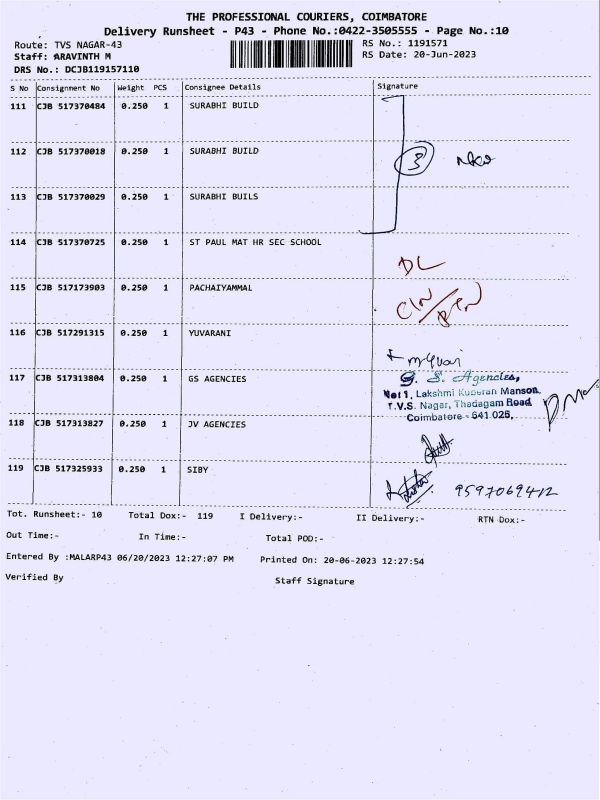 THE PROFESSIONAL COURIERS, COIMBATORE
Delivery Runsheet - P43 - Phone No.:0422-3505555 - Page No.:10
Route: TVS NAGAR-43 RS No.: 1191571
Staff: ARAVINTH M RS Date: 20-Jun-2023
DRS No.: DCJB119157110
S No Consignment No Weight PCS Consignee Details Signature
111 CJB 517370484 0.250 1 SURABHI BUILD
112 CJB 517370018 0.250 1 SURABHI BUILD 3
113 CJB 517370029 0.250 1 SURABHI BUILS
114 CJB 517370725 0.250 1 ST PAUL MAT HR SEC SCHOOL
DL
115 CJB 517173903 0.250 1 PACHAIYAMMAL
116 CJB 517291315 0.250 1 YUVARANI
117 CJB 517313804 0.250 1 GS AGENCIES
G. S. Agencies,
No: 1, Lakshmi Kuberan Manson,
T.V.S. Nagar, Thadagam Road
Coimbatore - 641 025.
118 CJB 517313827 0.250 1 JV AGENCIES
119 CJB 517325933 0.250 1 SIBY
9597069412
Tot. Runsheet:- 10 Total Dox:- 119 I Delivery:- II Delivery:- RTN Dox:-
Out Time:- In Time:- Total POD:-
Entered By :MALARP43 06/20/2023 12:27:07 PM Printed On: 20-06-2023 12:27:54
Verified By Staff Signature